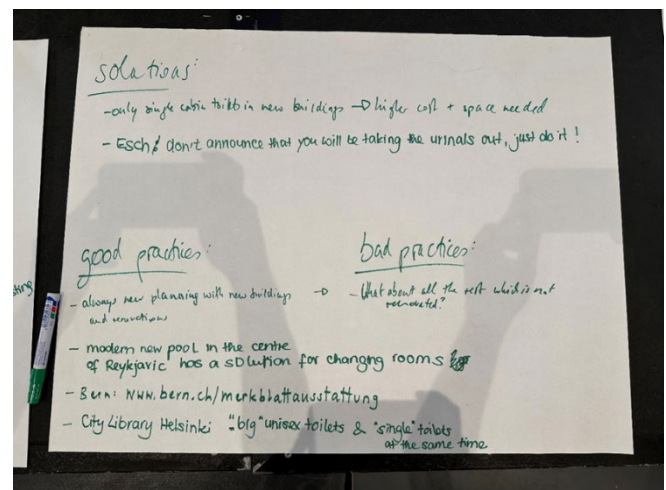 solutions:
- only single cabin toilets in new buildings → higher cost + space needed
- Esch: don't announce that you will be taking the urinals out, just do it!
good practices:
- always new planning with new buildings →
and renovations
- modern new pool in the centre
of Reykjavic has a solution for changing rooms
- Bern: www.bern.ch/merkblattausstattung
- City Library Helsinki "big" unisex toilets & "single" toilets
at the same time
bad practices:
- What about all the rest which is not
renovated?